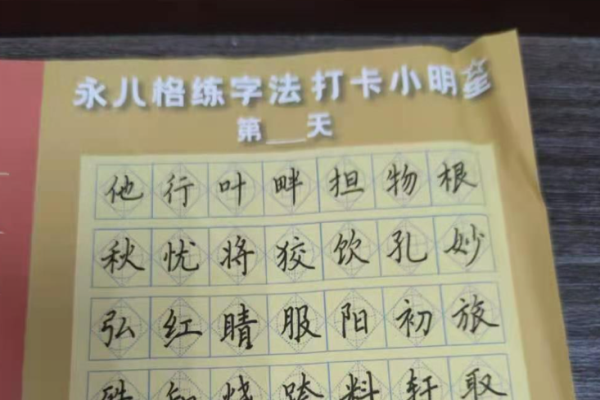 永儿格练字法打卡小明星
第___天
他行叶畔担物根
秋忧将狡饮孔妙
弘红睛服阳初旅
知烧跨料轩取